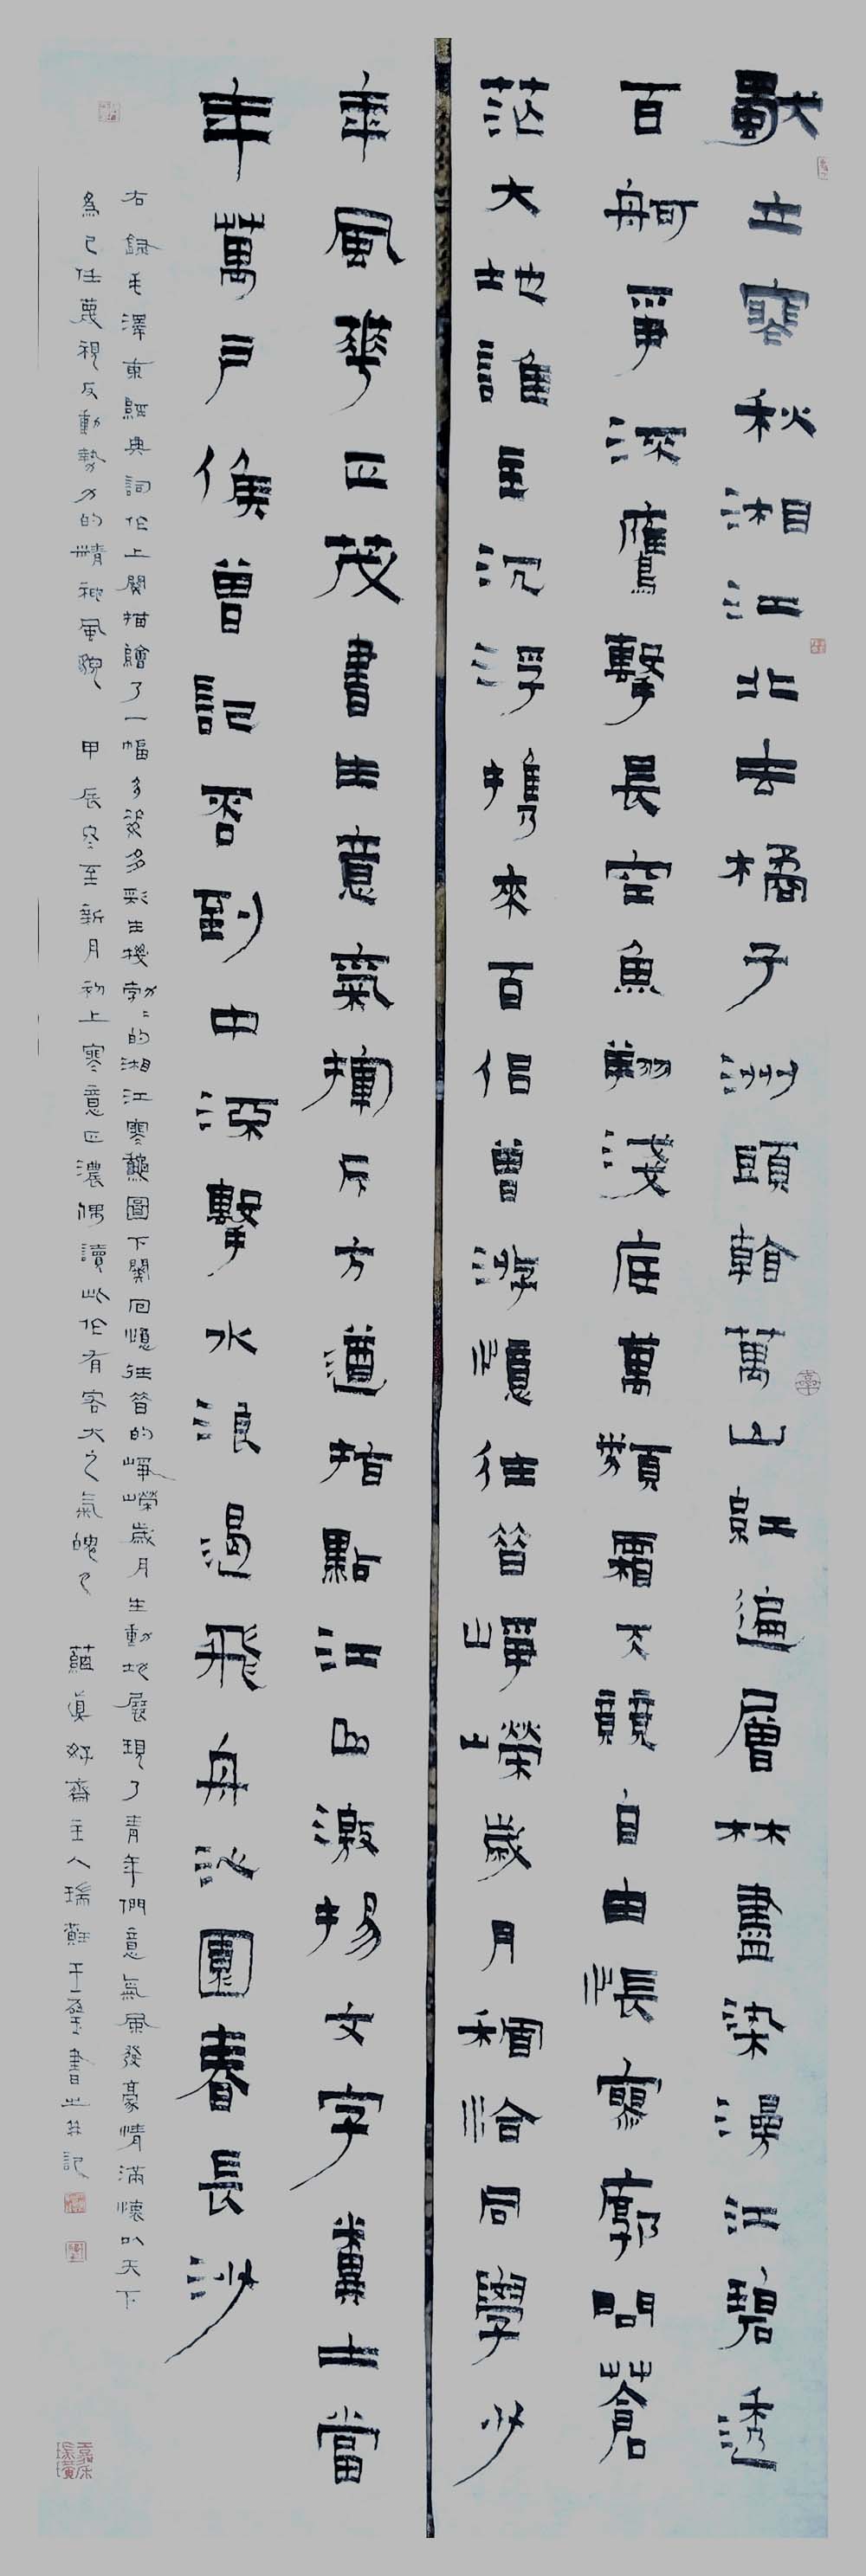 獨立寒秋湘江北去橘子洲頭看萬山紅遍層林盡染漫江碧透
百舸爭流鷹擊長空魚翔淺底萬類霜天競自由悵寥廓問蒼
茫大地誰主沉浮攜來百侣曾游憶往昔崢嶸歲月稠恰同學少
年風華正茂書生意氣揮斥方遒指點江山激揚文字糞土當
年萬户侯曾記否到中流擊水浪遏飛舟沁園春長沙
右錄毛澤東經典詞作上闋描繪了一幅多姿多彩生機勃勃的湘江寒秋圖下闋回憶往昔的崢嶸歲月生動地展現了青年們意氣風發豪情滿懷以天下
為己任蔑視反動勢力的精神風貌 甲辰冬至新月初上寒意正濃偶讀此作有容大之氣魄也 蘊真好齋主人瑞 于 書之并記